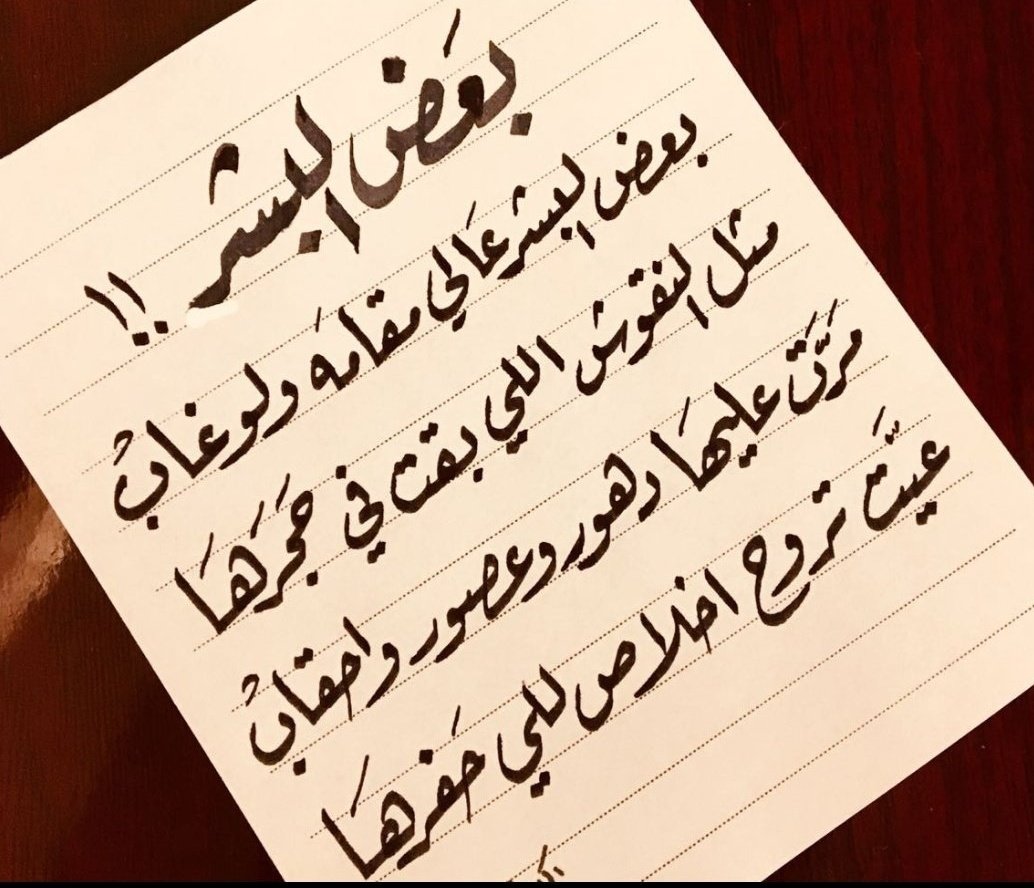 بعَض البشر !!
بعض البشر عَالي مقامَه ولو غابْ
مثل النقوش اللي بقت في حَجَرَهَا
مَرَّتَ عليهَا دهور وعصور واحقابْ
عيَّت تروح اخلاص للي حَفرهَا